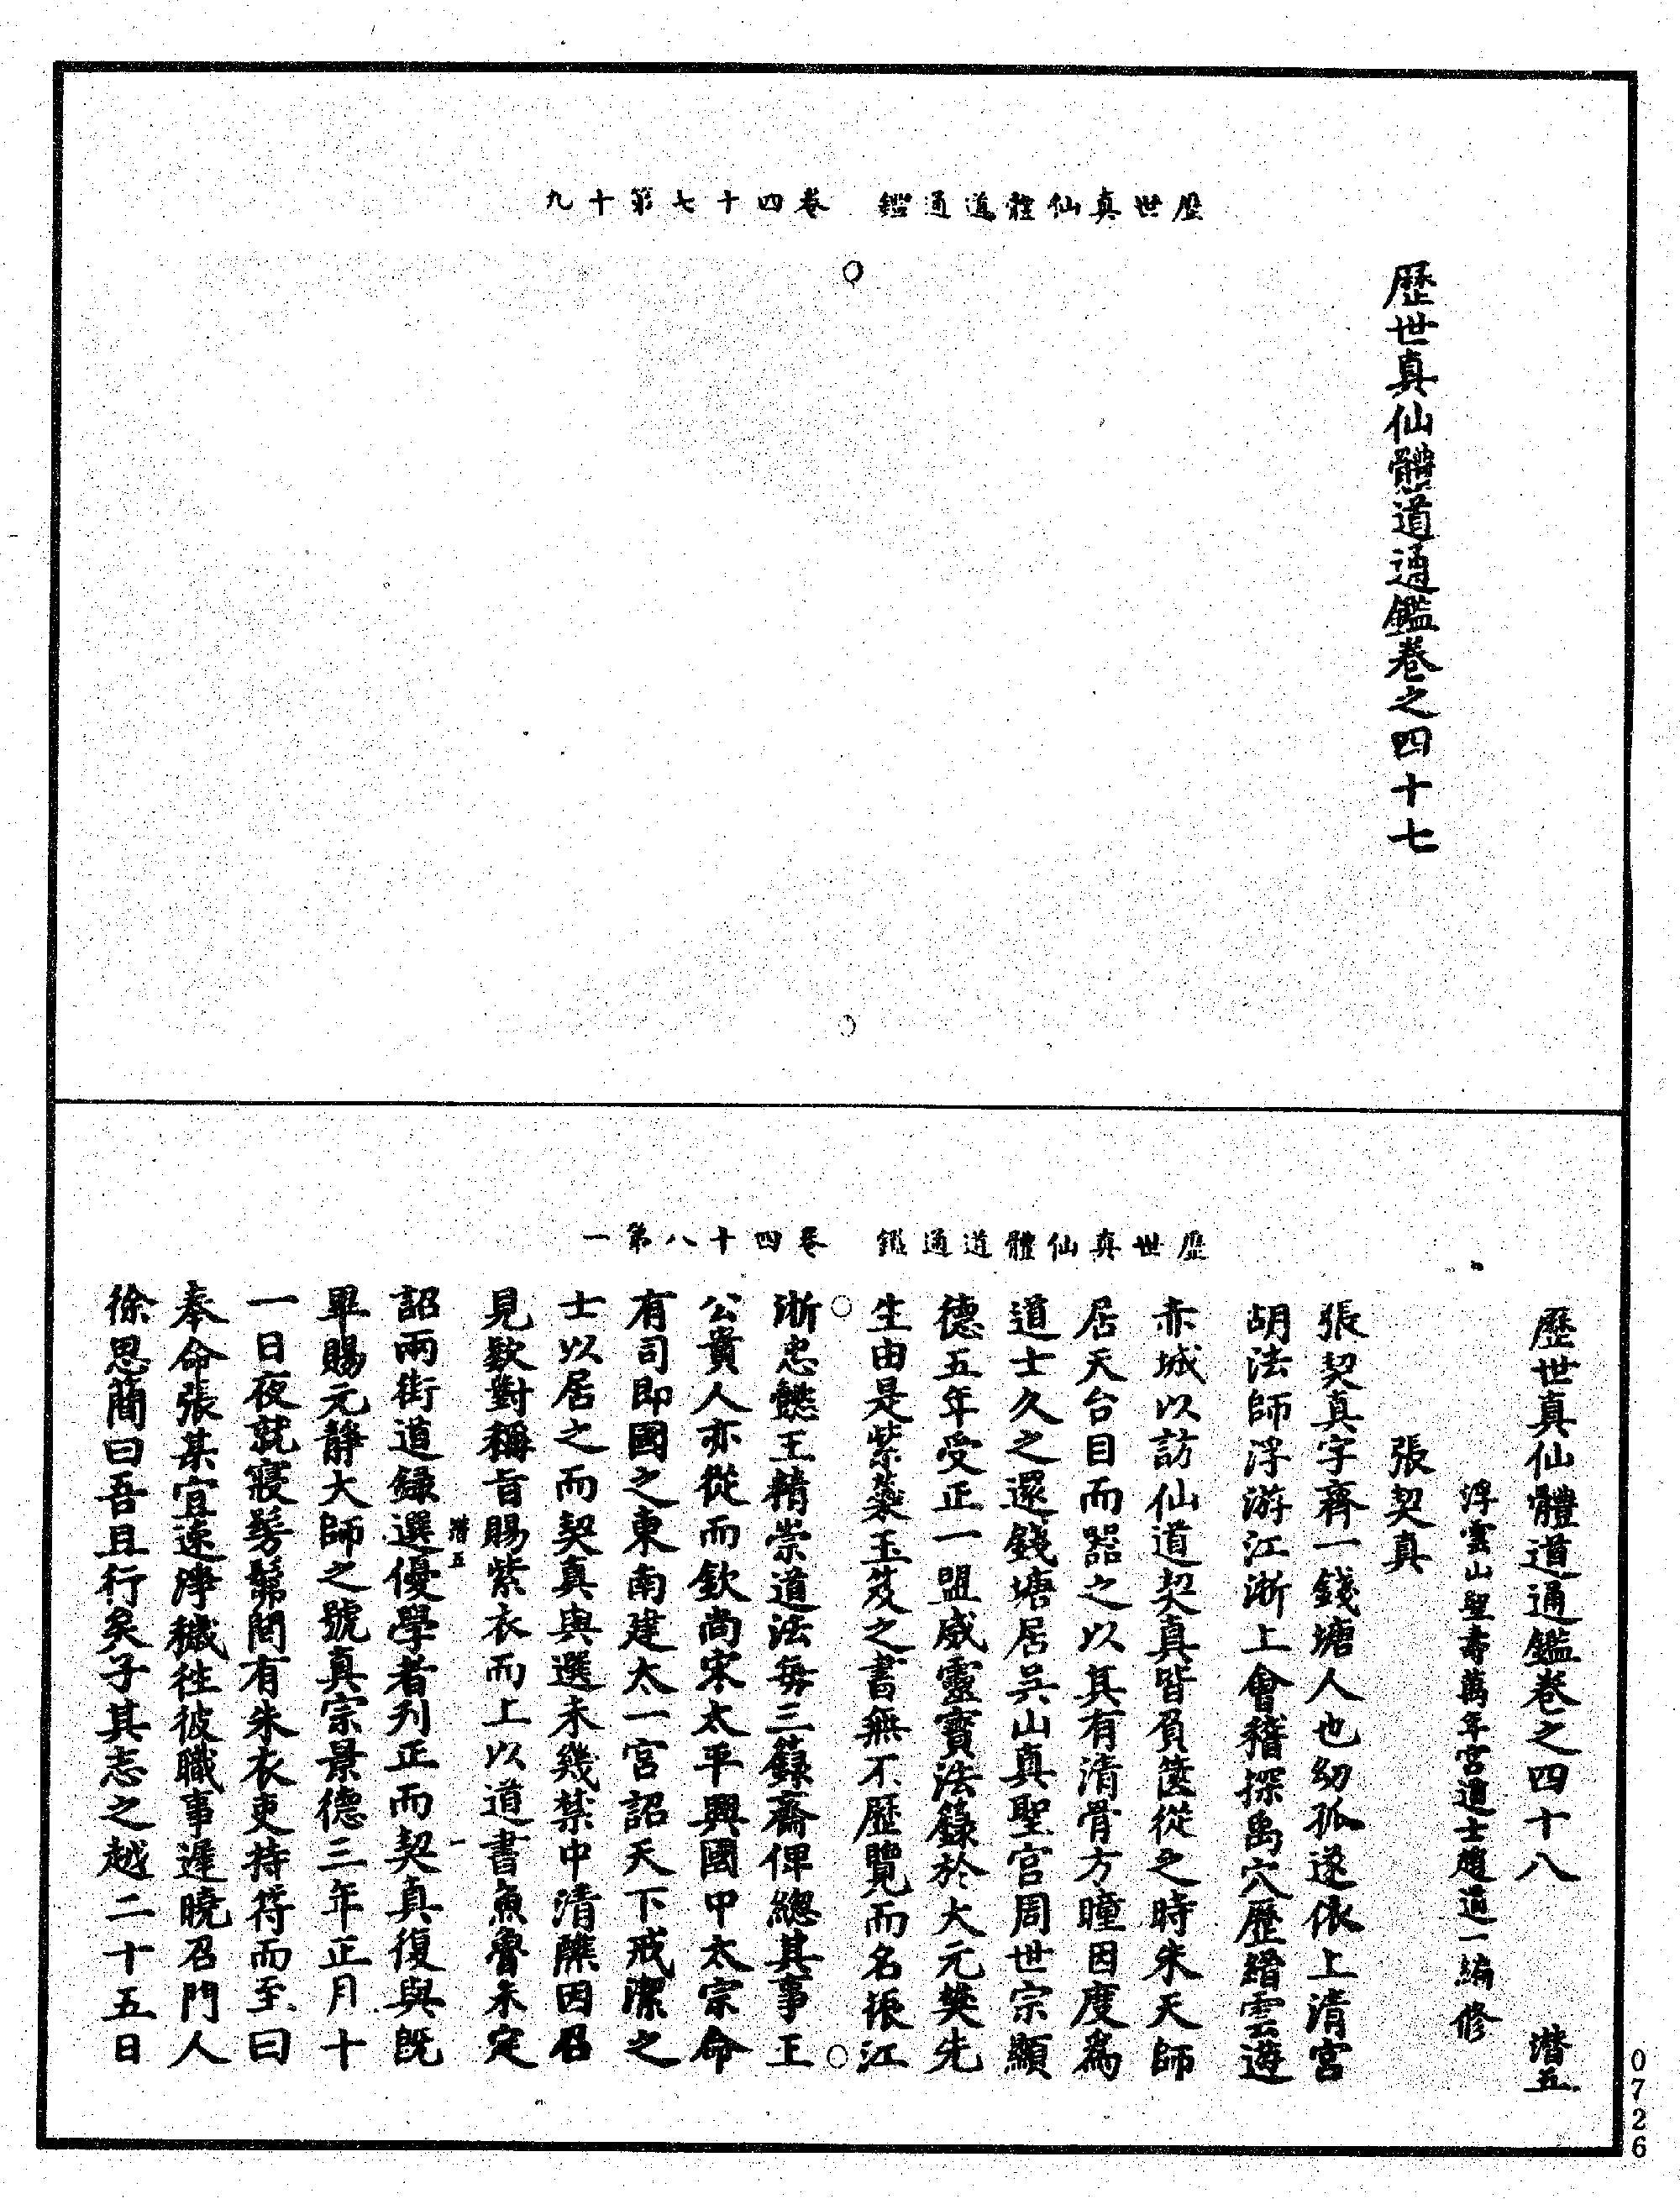 歷世真仙體道通鑑　卷四十七第十九
歷世真仙體道通鑑卷之四十七
歷世真仙體道通鑑　卷四十八第一
歷世真仙體道通鑑卷之四十八　潛五
浮雲山聖壽萬年宮道士趙道一編修
張契真
張契真字齊一錢塘人也幼孤遂依上清宮
胡法師浮游江淛上會稽探禹穴歷縉雲海
赤城以訪仙道契真皆負篋從之時朱天師
居天台目而器之以其有清骨方瞳因度為
道士久之還錢塘居吳山真聖宮周世宗顯
德五年受正一盟威靈寶法籙於大元樊先
生由是紫蘂玉笈之書無不歷覽而名振江
淛忠懿王精崇道法每三籙齋俾總其事王
公貴人亦從而欽尚宋太平興國中太宗命
有司即國之東南建太一宮詔天下戒潔之
士以居之而契真與選未幾禁中清醮因召
見欵對稱旨賜紫衣而上以道書魚魯未定
潛五　一
詔兩街道錄選優學者刋正而契真復與既
畢賜元靜大師之號真宗景德三年正月十
一日夜就寢髣髴間有朱衣吏持符而至曰
奉命張某宜速淨穢徃彼職事遲曉召門人
徐思簡曰吾且行矣子其志之越二十五日
0726